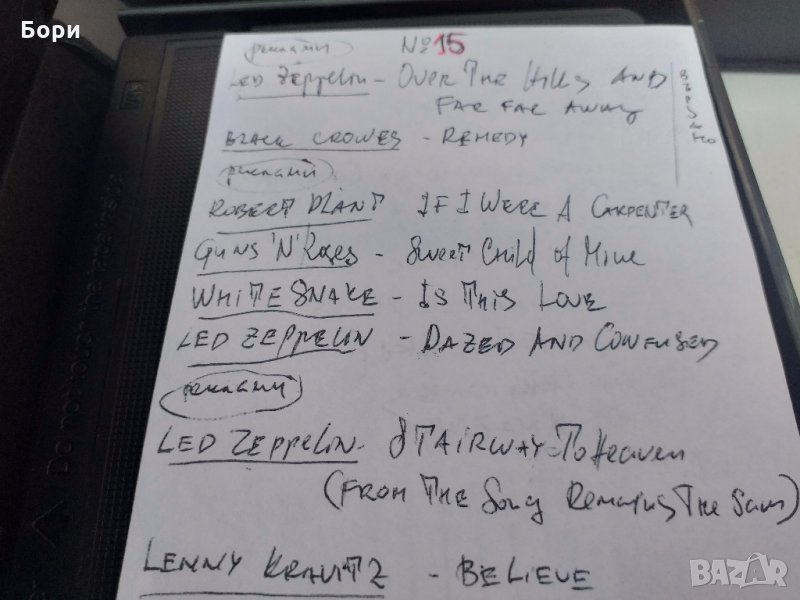 Бори
реклами № 15
LED ZEPPELIN - OVER THE HILLS AND
FAR FAR AWAY
BLACK CROWES - REMEDY
реклами
ROBERT PLANT IF I WERE A CARPENTER
GUNS 'N' ROSES - SWEET CHILD OF MINE
WHITE SNAKE - IS THIS LOVE
LED ZEPPELIN - DAZED AND CONFUSED
реклами
LED ZEPPELIN - STAIRWAY TO HEAVEN
(FROM THE SONG REMAINS THE SAME)
LENNY KRAVITZ - BELIEVE
Do not touch the
BAZAR